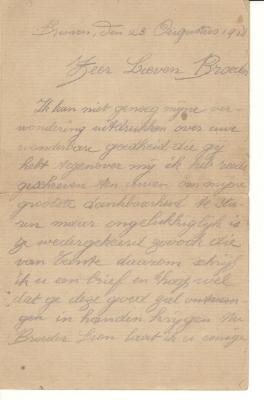 den 23 Augustus 19
Zeer Lieven Broeder
Ik kan niet genoeg mijne ver-
wondering uitdrukken over uwe
wonderbare goedheid die gij
hebt tegenover mij ik heb reeds
geschreven ten uwen om mijne
grootste dankbaarheid te stu-
ren maar ongelukkiglijk is
ze wedergekeerd
van daarom schrijf
ik u een brief en hoop wel
dat ge deze goed zal ontvan-
gen in handen krijgen Nu
Broeder Lieven laat ik u eenige